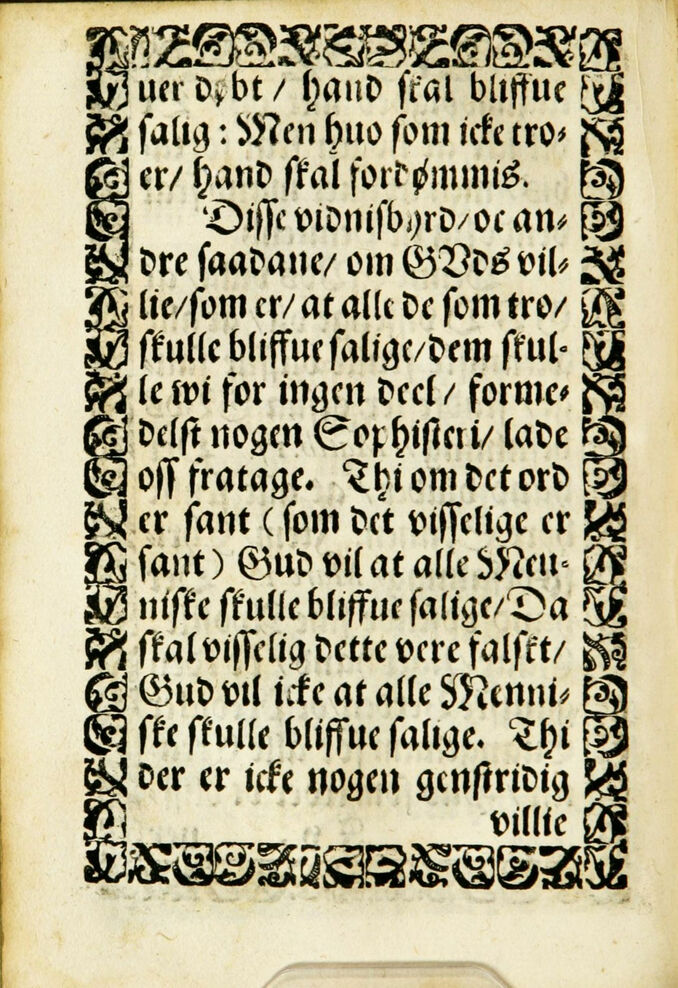 uer døbt / hand skal bliffue
salig : Men huo som icke tro⸗
er/ hand skal fordømmis.
Disse vidnisbyrd/oc an⸗
dre saadane/ om GVds vil⸗
lie/som er/ at alle de som tro/
skulle bliffue salige/dem skul⸗
le wi for ingen deel / forme⸗
delst nogen Sophisteri/ lade
oss fratage. Thi om det ord
er sant ( som det visselige er
sant ) Gud vil at alle Men⸗
niske skulle bliffue salige/Da
skal visselig dette vere falskt/
Gud vil icke at alle Menni⸗
ske skulle bliffue salige. Thi
der er icke nogen genstridig
villie